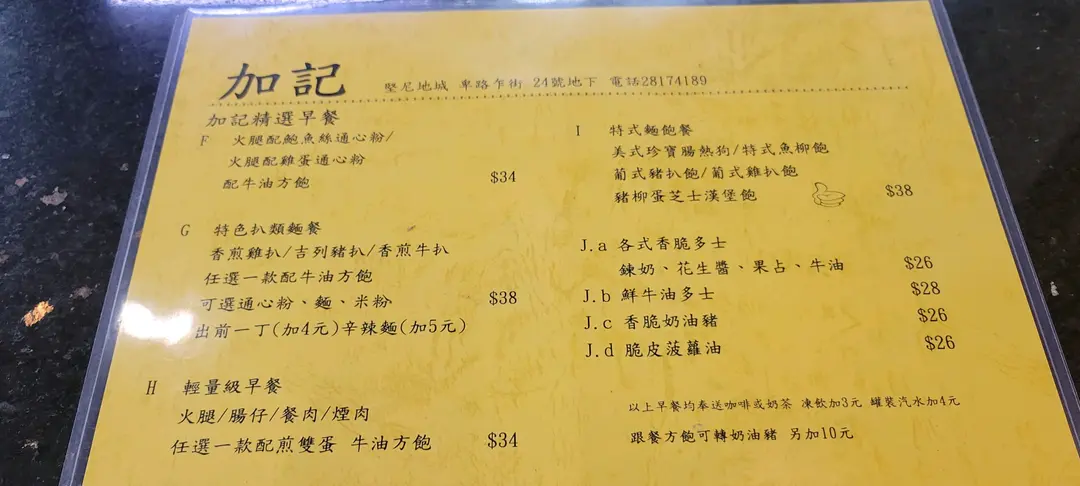 加記
堅尼地城 卑路乍街 24號地下 電話28174189
加記精選早餐
F 火腿配鮑魚絲通心粉/
火腿配雞蛋通心粉
配牛油方飽 $34
G 特色扒類麵餐
香煎雞扒/吉列豬扒/香煎牛扒
任選一款配牛油方飽
可選通心粉、麵、米粉 $38
出前一丁(加4元)辛辣麵(加5元)
H 輕量級早餐
火腿/腸仔/餐肉/煙肉
任選一款配煎雙蛋 牛油方飽 $34
I 特式麵飽餐
美式珍寶腸熱狗/特式魚柳飽
葡式豬扒飽/葡式雞扒飽
豬柳蛋芝士漢堡飽 $38
J.a 各式香脆多士
鍊奶、花生醬、果占、牛油 $26
J.b 鮮牛油多士 $28
J.c 香脆奶油豬 $26
J.d 脆皮菠蘿油 $26
以上早餐均奉送咖啡或奶茶 凍飲加3元 罐裝汽水加4元
跟餐方飽可轉奶油豬 另加10元